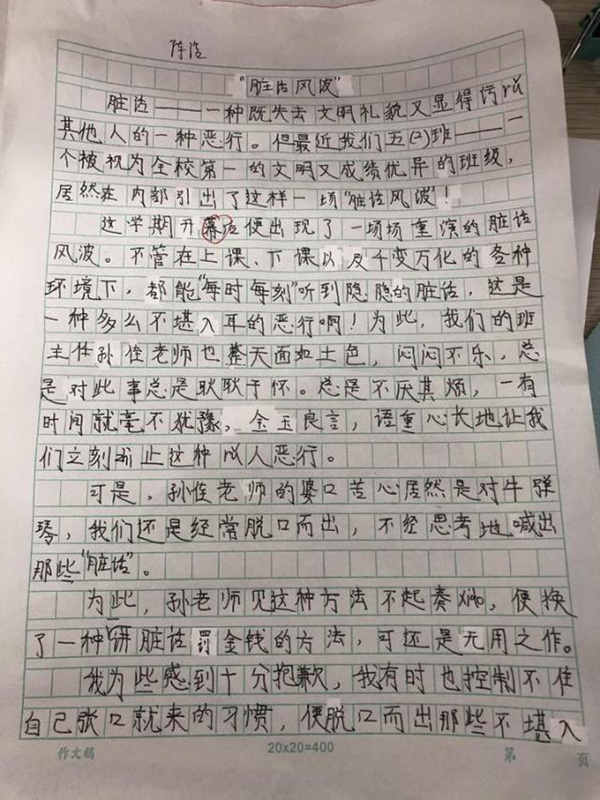 陈浩
“脏话风波”
脏话———一种既失去文明礼貌又显得污rǔ
其他人的一种恶行。但最近我们五(2)班———一
个被视为全校第一的文明又成绩优异的班级，
居然在内部引出了这样一场“脏话风波！
这学期开幕后便出现了一场场重演的脏话
风波。不管在上课、下课以及千变万化的各种
环境下，都能“每时每刻”听到隐隐的脏话，这是
一种多么不堪入耳的恶行啊！为此，我们的班
主任孙佳老师也整天面如土色，闷闷不乐，总
是对此事总是耿耿于怀。总是不厌其烦，一有
时间就毫不犹豫，金玉良言，语重心长地让我
们立刻停止这种 人恶行。
可是，孙佳老师的婆口苦心居然是对牛弹
琴，我们还是经常脱口而出，不经思考地喊出
那些“脏话”。
为此，孙老师见这种方法不起奏xiào，便换
了一种“讲脏话罚金钱的方法，可还是无用之作。
我为些感到十分抱歉，我有时也控制不住
自己张口就来的习惯，便脱口而出那些不堪入
作文稿
20x20=400
第 页